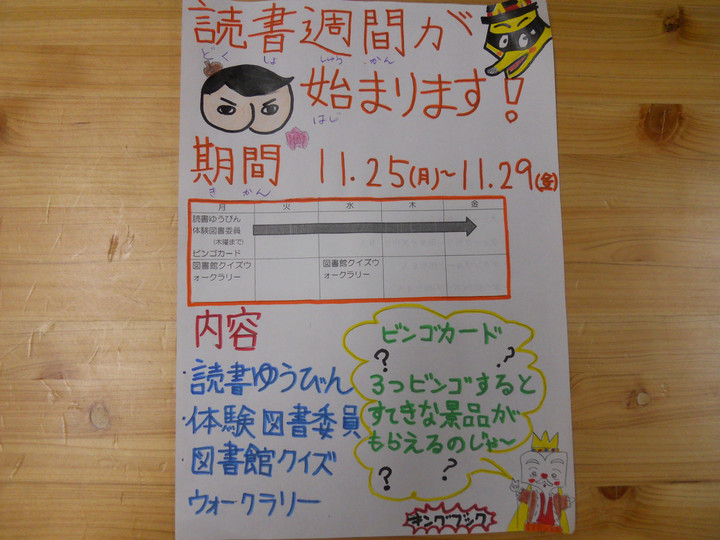 読書週間が
どく しょ しゅう かん
始まります!
はじ
期間 11.25(月)~11.29(金)
き かん
月 火 水 木 金
読書ゆうびん
体験図書委員
(木曜まで)
ビンゴカード
図書館クイズウ
ォークラリー
図書館クイズウ
ォークラリー
内容
・読書ゆうびん
・体験図書委員
・図書館クイズ
ウォークラリー
ビンゴカード
? ?
3つビンゴすると
すてきな景品が
もらえるのじゃ~
? ?
キングブック